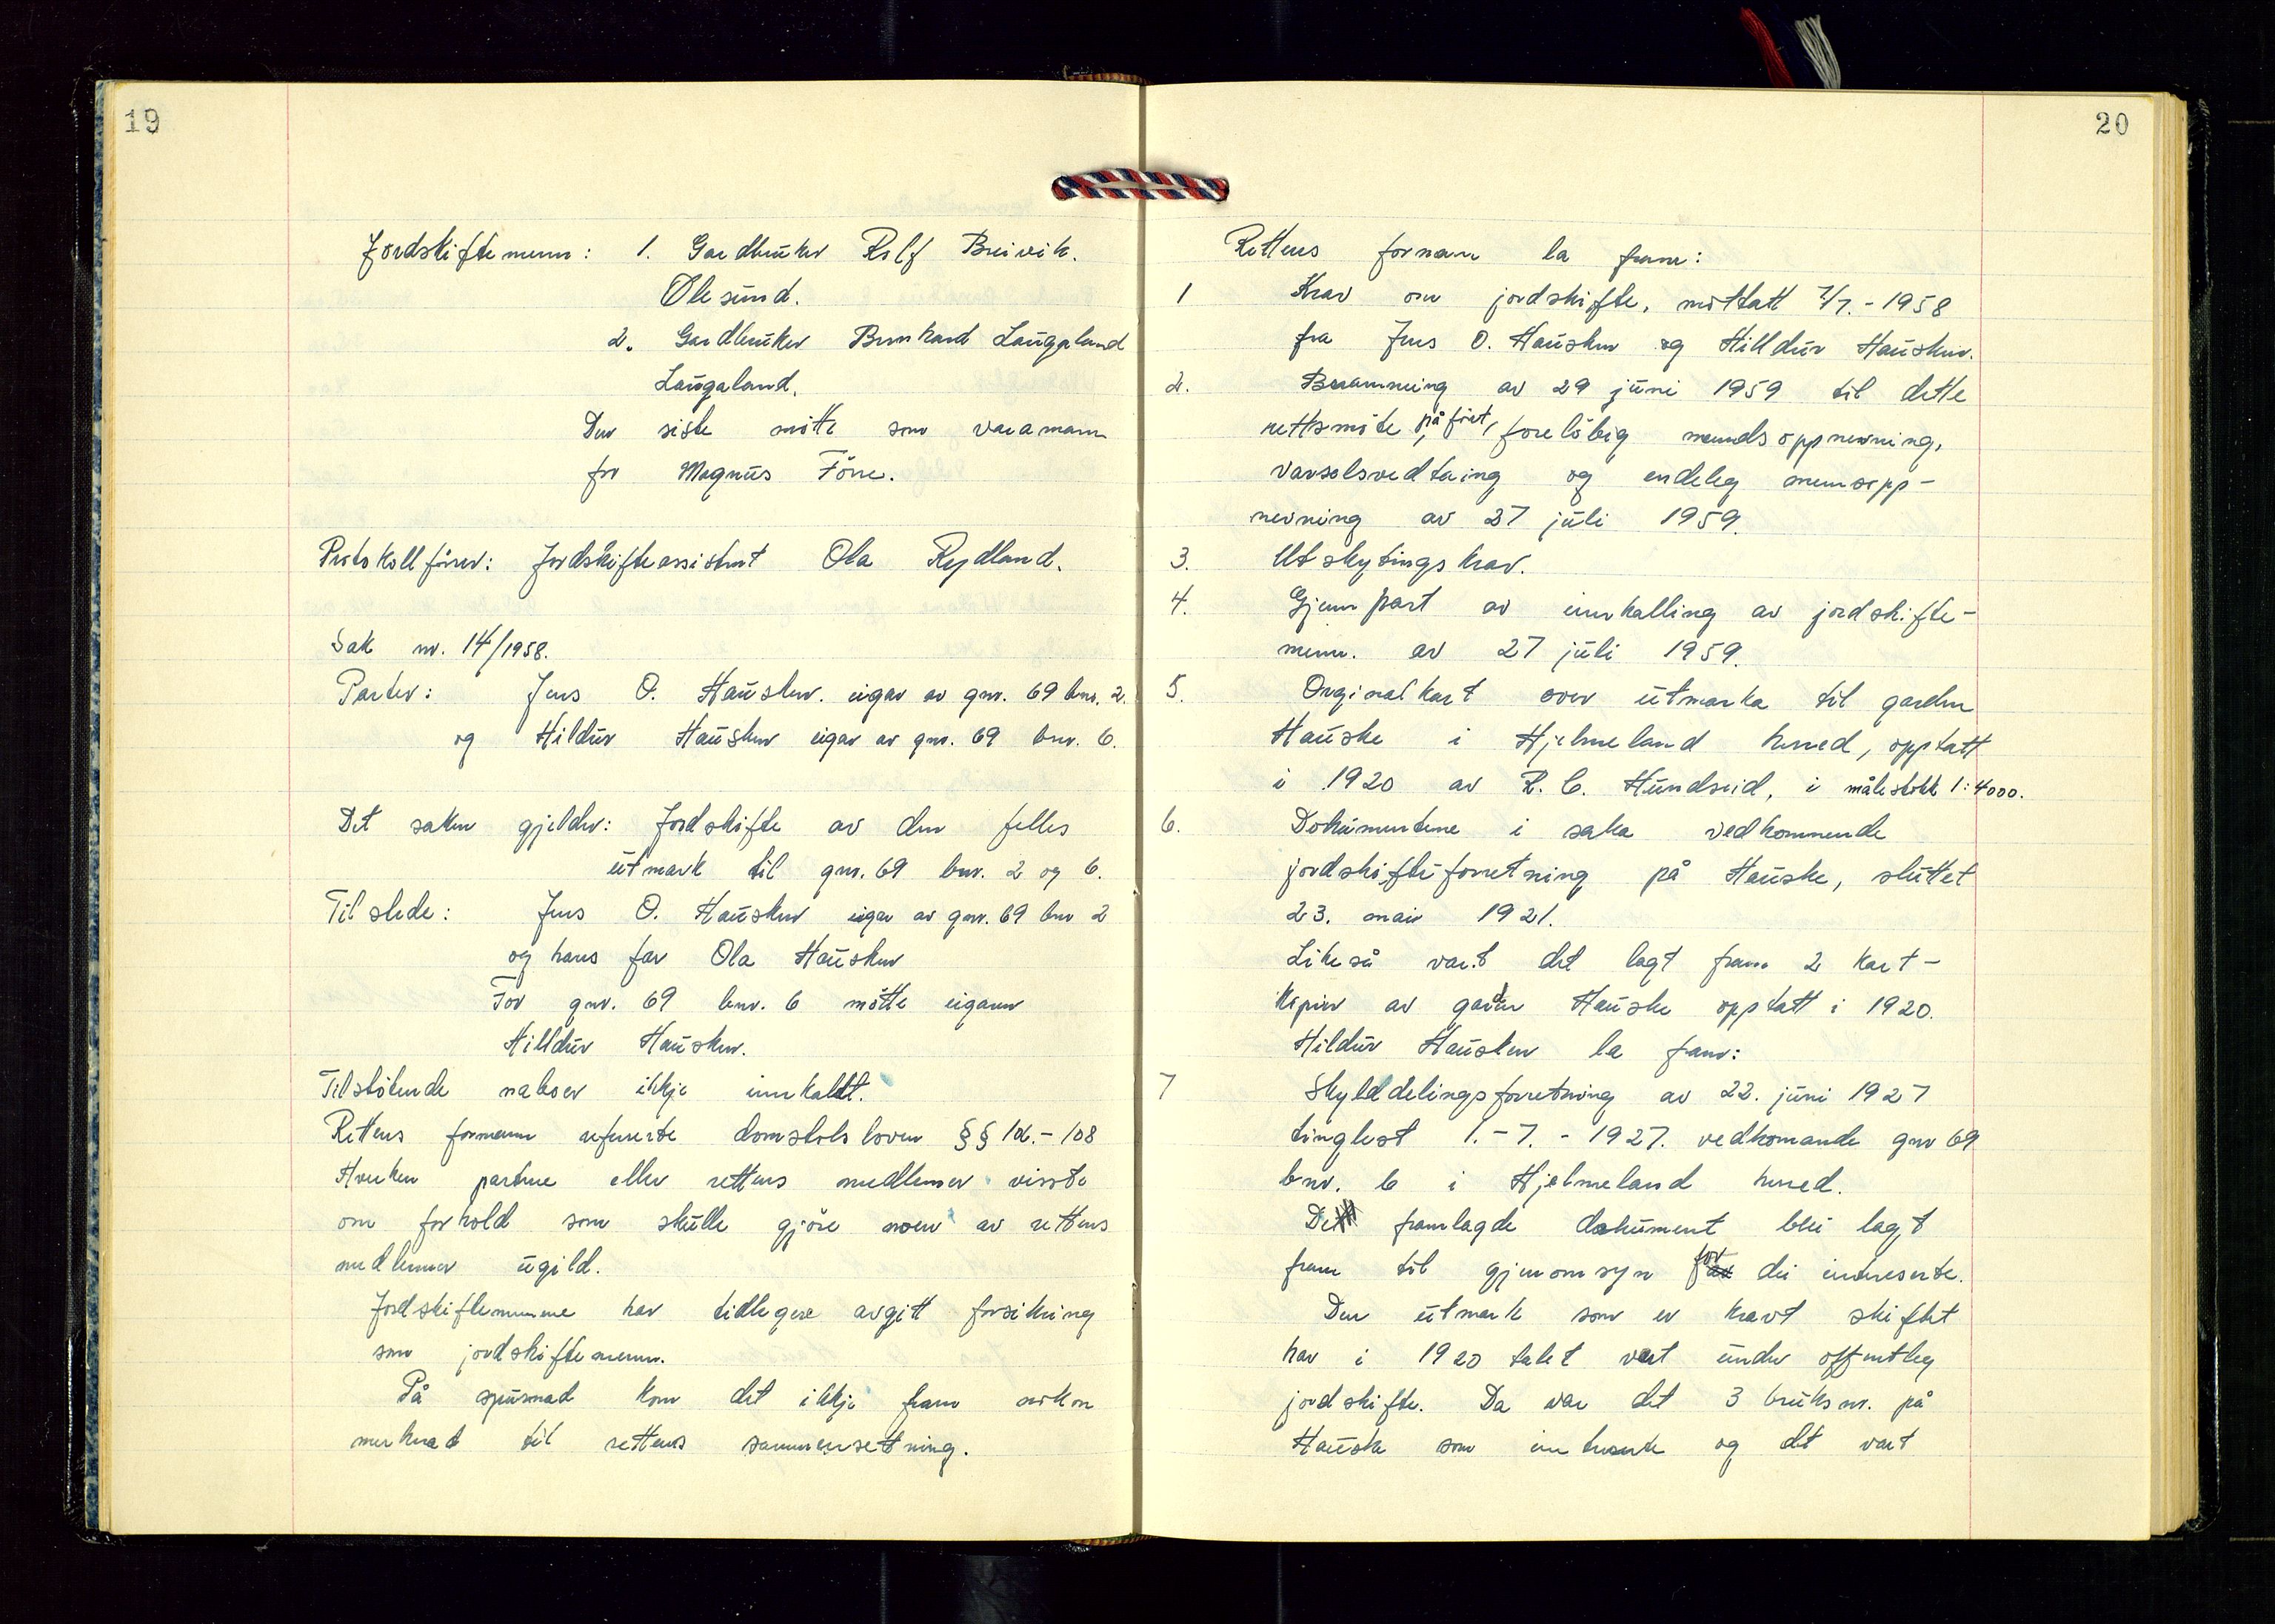 19
Jordskiftemenn: 1. Gardbruker Rolf Breivik.
Ølesund.
2. Gardbruker Bernhard Laugaland
Laugaland.
Den siste møtte som varamann
for Magnus Førre.
Protokollfører: Jordskifteassistent Ola Rydland.
Sak nr. 14/1958.
Parter: Jens O. Hausken. eigar av gnr. 69 bnr. 2.
og Hildur Hausken eigar av gnr. 69 bnr. 6.
Det saken gjelder: Jordskifte av den felles
utmark til gnr. 69 bnr. 2 og 6.
Til stede: Jens O. Hausken eigar av gnr. 69 bnr 2
og hans far Ola Hausken
For gnr. 69 bnr. 6 møtte eigaren
Hilldur Hausken.
Tilstøtende naboer ikkje innkaldt.
Rettens formann refererte domstolsloven §§ 106.-108
Hverken partene eller rettens medlemer visste
om forhold som skulle gjøre noen av rettens
medlemmer ugild.
Jordskiftemennene har tidlegere avgitt forsikring
som jordskiftemenn.
På spursmad kom det ikkje fram nokon
merknad til rettens sammensetning.
20
Rettens formann la fram:
1 Krav om jordskifte, mottatt 7/7.-1958
fra Jens O. Hausken og Hilldur Hausken.
2. Beramming av 29 juni 1959 til dette
rettsmøte på ført, foreløbig mennds oppnevning,
varselsvedtaing og endeleg mennsopp-
nevning av 27 juli 1959.
3. Utskytings krav.
4. Gjennpart av innkalling av jordskifte-
menn. av 27 juli 1959.
5. Orginalkart over utmarka til garden
Hauske i Hjelmeland herred, opptatt
i 1920 av R. C. Hundseid, i målestokk 1:4000.
6. Dokumentene i saka vedkommende
jordskifteforretning på Hauske, sluttet
23. mai 1921.
Likeså vart det lagt fram 2 kart-
kopier av garden Hauske opptatt i 1920.
Hildur Hausken la fram:
7 Skylddelingsforretning av 22. juni 1927
tinglest 1.-7.-1927. vedkomande gnr 69
bnr. 6 i Hjelmeland herred.
De framlagde dokument blei lagt
fram til gjenomsyn for dei intreserte.
Den utmark som er kravt skiftet
har i 1920 talet vert under offentleg
jordskifte. Da var det 3 bruksnr. på
Hauske som intreserte og det vart